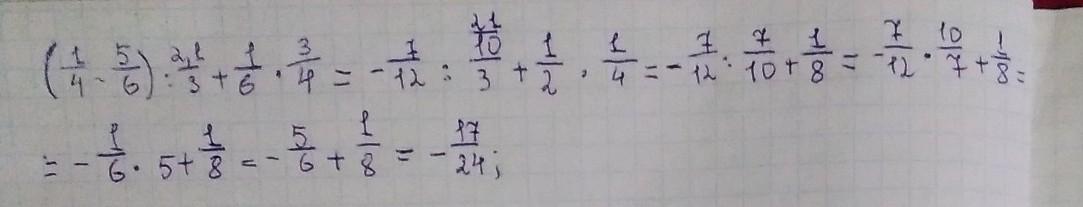 (1/4 - 5/6) : 2,1/3 + 1/6 · 3/4 = - 7/12 : 21/10/3 + 1/2 · 1/4 = - 7/12 : 7/10 + 1/8 = - 7/12 · 10/7 + 1/8 =
= - 1/6 · 5 + 1/8 = - 5/6 + 1/8 = - 17/24;